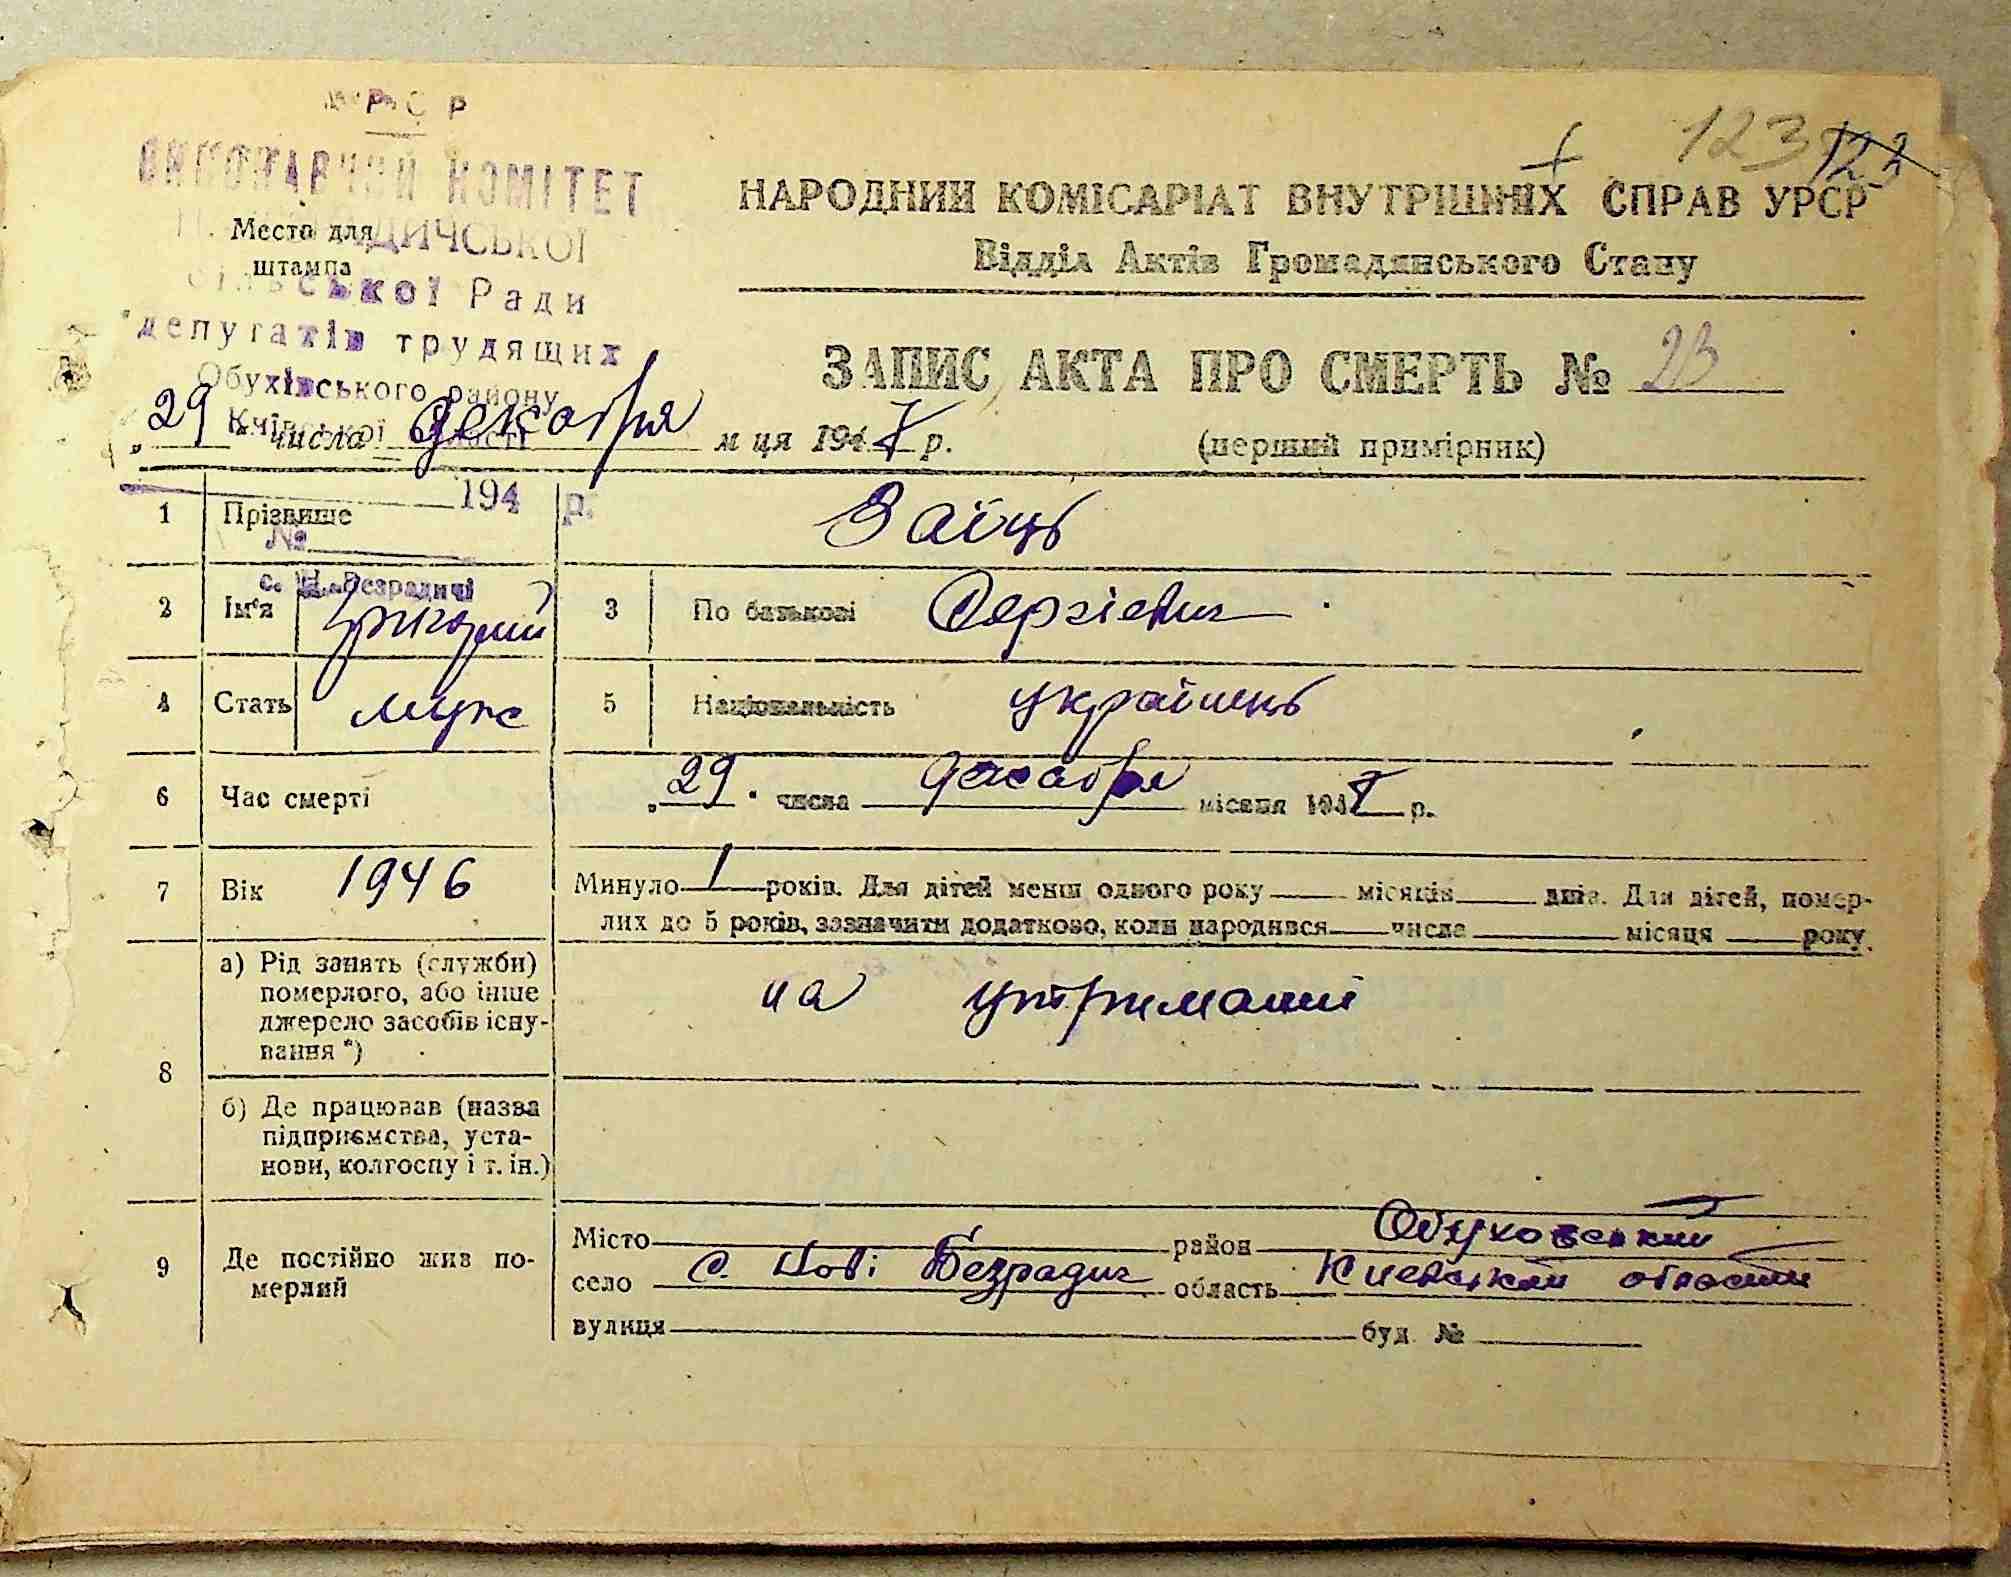 УРСР
ВИКОНАВЧИЙ КОМІТЕТ
Н. БЕЗРАДИЧСЬКОЇ
Сільської Ради
депутатів трудящих
Обухівського району
Київської області
194 р.
№
с. Н.-Безрадичі
Место для
штампа
123 122
НАРОДНИЙ КОМІСАРІАТ ВНУТРІШНІХ СПРАВ УРСР
Відділ Актів Громадянського Стану
ЗАПИС АКТА ПРО СМЕРТЬ № 23
„29" числа декабря м ця 1947 р. (перший примірник)
1 Прізвище Заїць
2 Ім'я Григорий 3 По батькові Сергієвич
4 Стать муж 5 Національність українець
6 Час смерті „29" числа декабря місяця 1947 р.
7 Вік 1946 Минуло 1 років. Для дітей менш одного року місяців днів. Для дітей, помер-
лих до 5 років, зазначити додатково, коли народився числа місяця року.
8 а) Рід занять (служби)
померлого, або інше
джерело засобів існу-
вання *)
на утриманні
б) Де працював (назва
підприємства, уста-
нови, колгоспу і т. ін.)
9 Де постійно жив по-
мерлий
Місто район Обуховский
село с. Нові Безрадич область Киевской области
вулиця буд. №